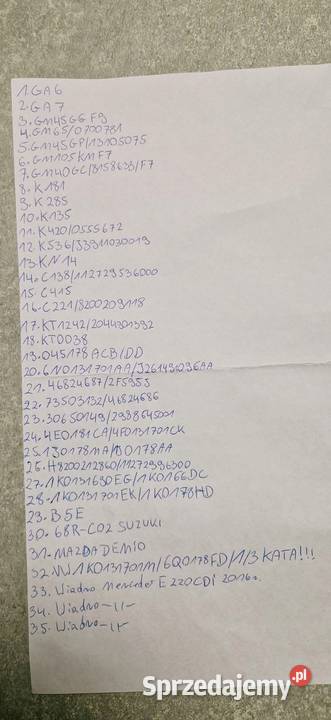 1. GA6
2. GA7
3. GM45GGF9
4. GM65/0700781
5. GM45GP/13105075
6. GM105KMF7
7. GM40GC/8158633/F7
8. K181
9. K285
10. K135
11. K420/0555672
12. K536/33311030019
13. KN14
14. C138/112729536000
15. C415
16. C221/8200209118
17. KT1242/2044901392
18. KT0038
19. 045178ACB/DD
20. 6N0131701AA/
21. 46824687/2F5953
22. 73503132/46824686
23. 30650149/2938645001
24. 4E0181CA/4F0131701CK
25. 130178MA/D0178AA
26. H8200212860/11272996300
27. 1K0131690EG/1K0166DC
28. 1K0131701EK/1K0178HD
29. B5E
30. 68R-C02 SUZUKI
31. MAZDA DEMIO
32. VW1K0131701M/6Q0178FD/1/3 KATA!!!
33. Wiadro Mercedes E220CDI 2016r.
34. Wiadro -11-
35. Wiadro -11-
Sprzedajemy.pl